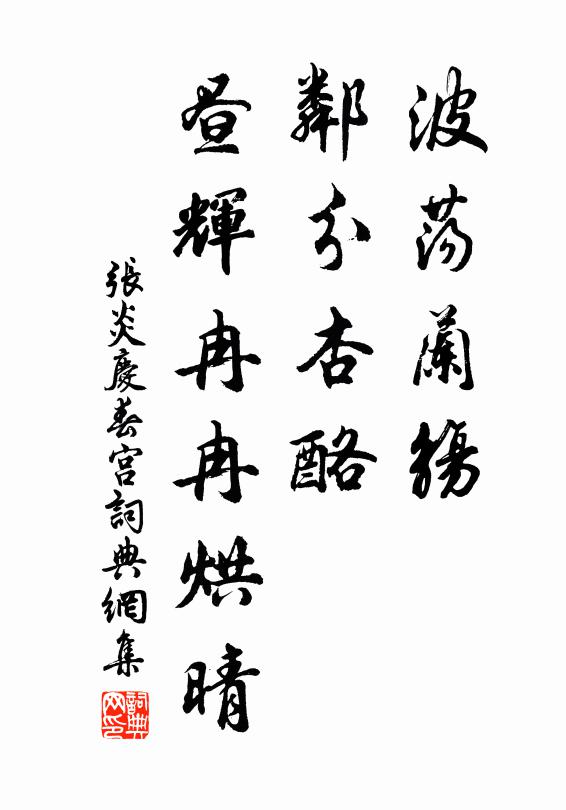 波蕩蘭觴
鄰分杏酪
昼輝冉冉烘晴
張炎慶春宮詞典網集
詞典網印